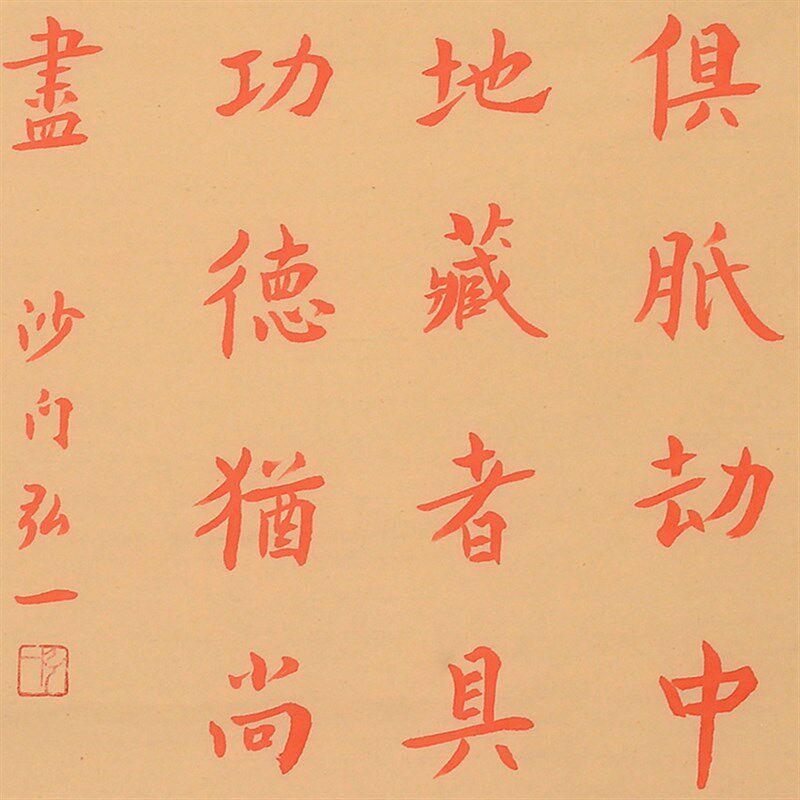 俱胝劫中
地藏者具
功德猶尚
盡
沙门弘一